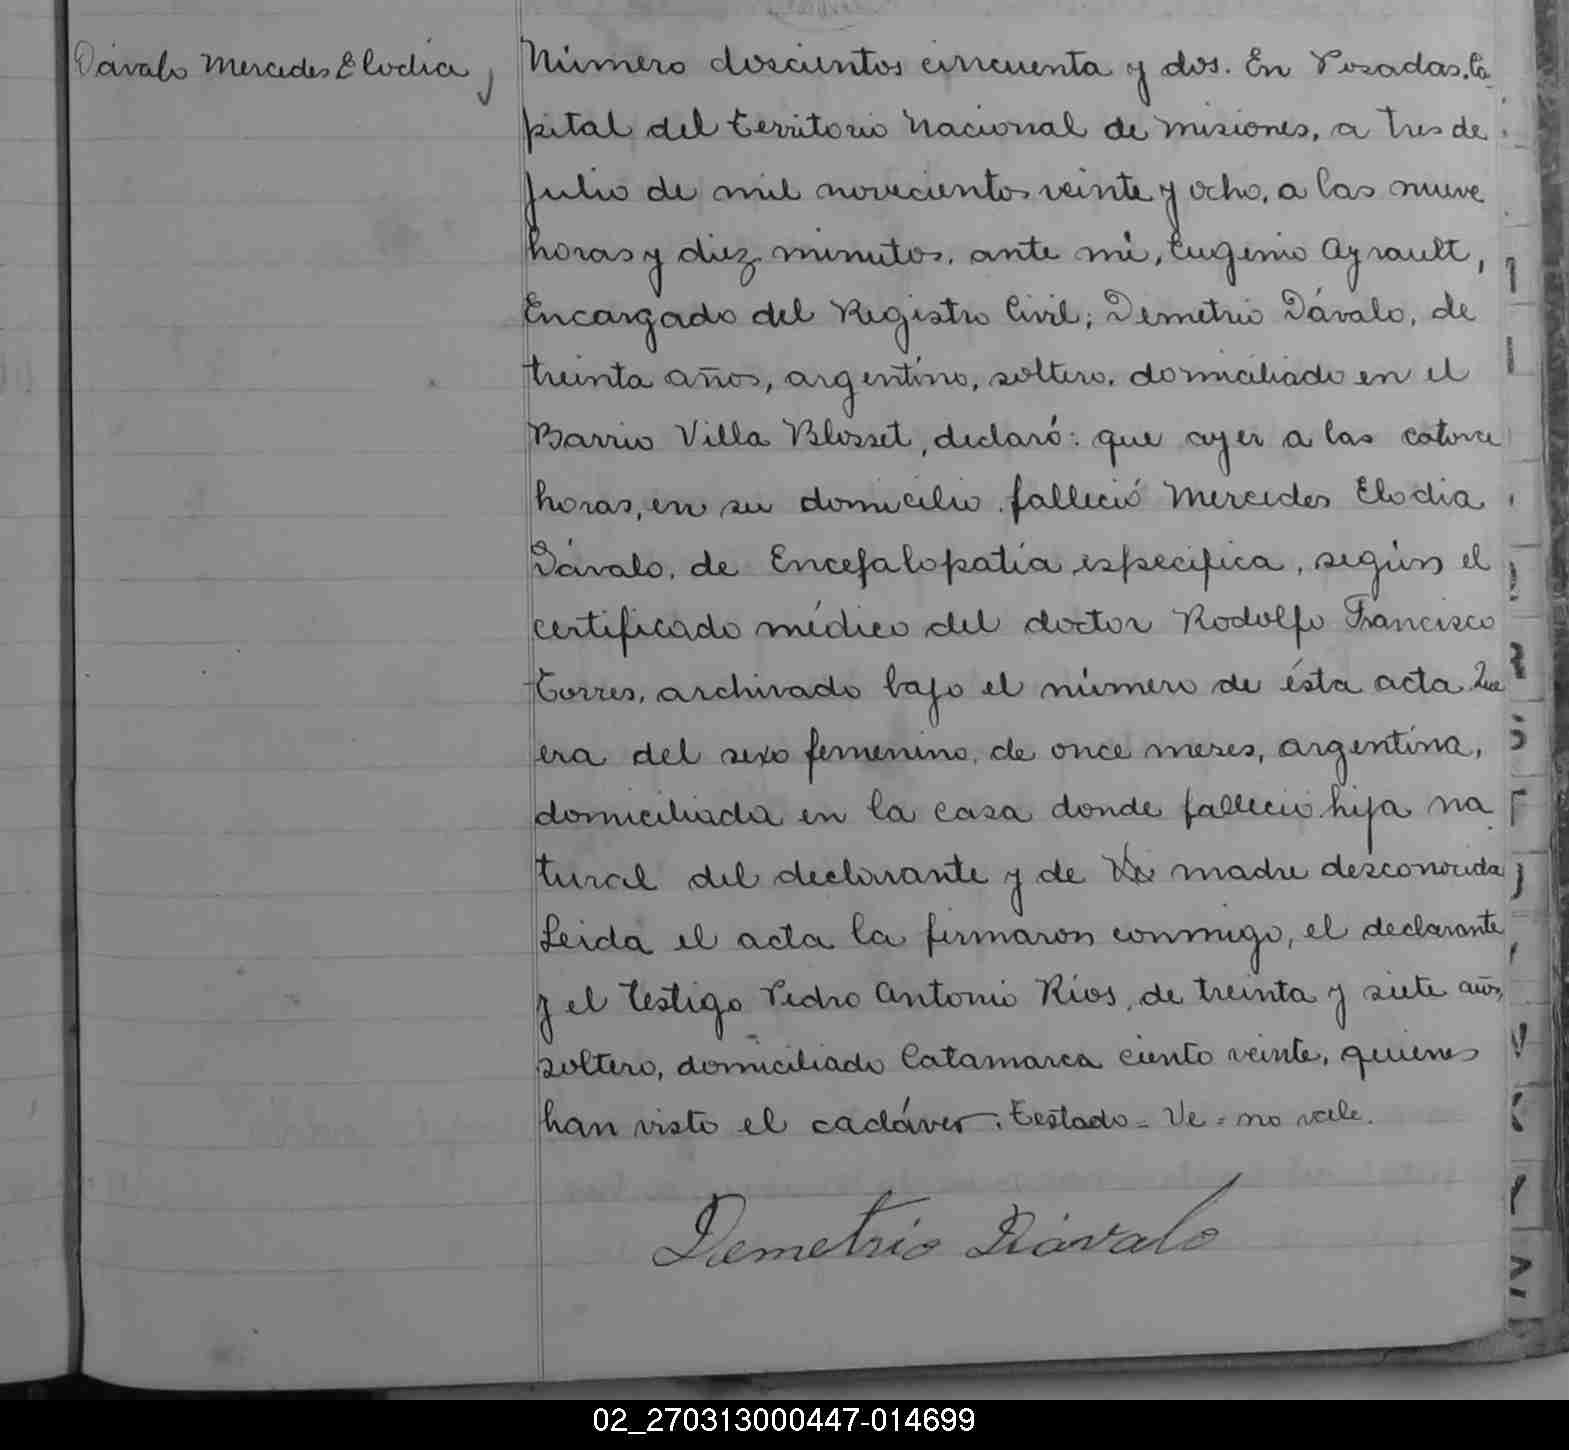 Dávalo Mercedes Elodia,
Número doscientos cincuenta y dos. En Posadas, Ca-
pital del Territorio Nacional de Misiones, a tres de
Julio de mil novecientos veinte y ocho, a las nueve
horas y diez minutos, ante mí, Eugenio Ayrault,
Encargado del Registro Civil; Demetrio Dávalo, de
treinta años, argentino, soltero, domiciliado en el
Barrio Villa Blosset, declaró: que ayer a las catorce
horas, en su domicilio falleció Mercedes Elodia
Dávalo, de Encefalopatía específica, según el
certificado médico del doctor Rodolfo Francisco
Torres, archivado bajo el número de ésta acta Que
era del sexo femenino, de once meses, argentina,
domiciliada en la casa donde falleció hija na
tural del declarante y de Ve madre desconocida
Leida el acta la firmaron conmigo, el declarante
y el testigo Pedro Antonio Ríos, de treinta y siete años,
soltero, domiciliado Catamarca ciento veinte, quienes
han visto el cadáver. Testado = Ve = no vale.
Demetrio Dávalo
02_270313000447-014699